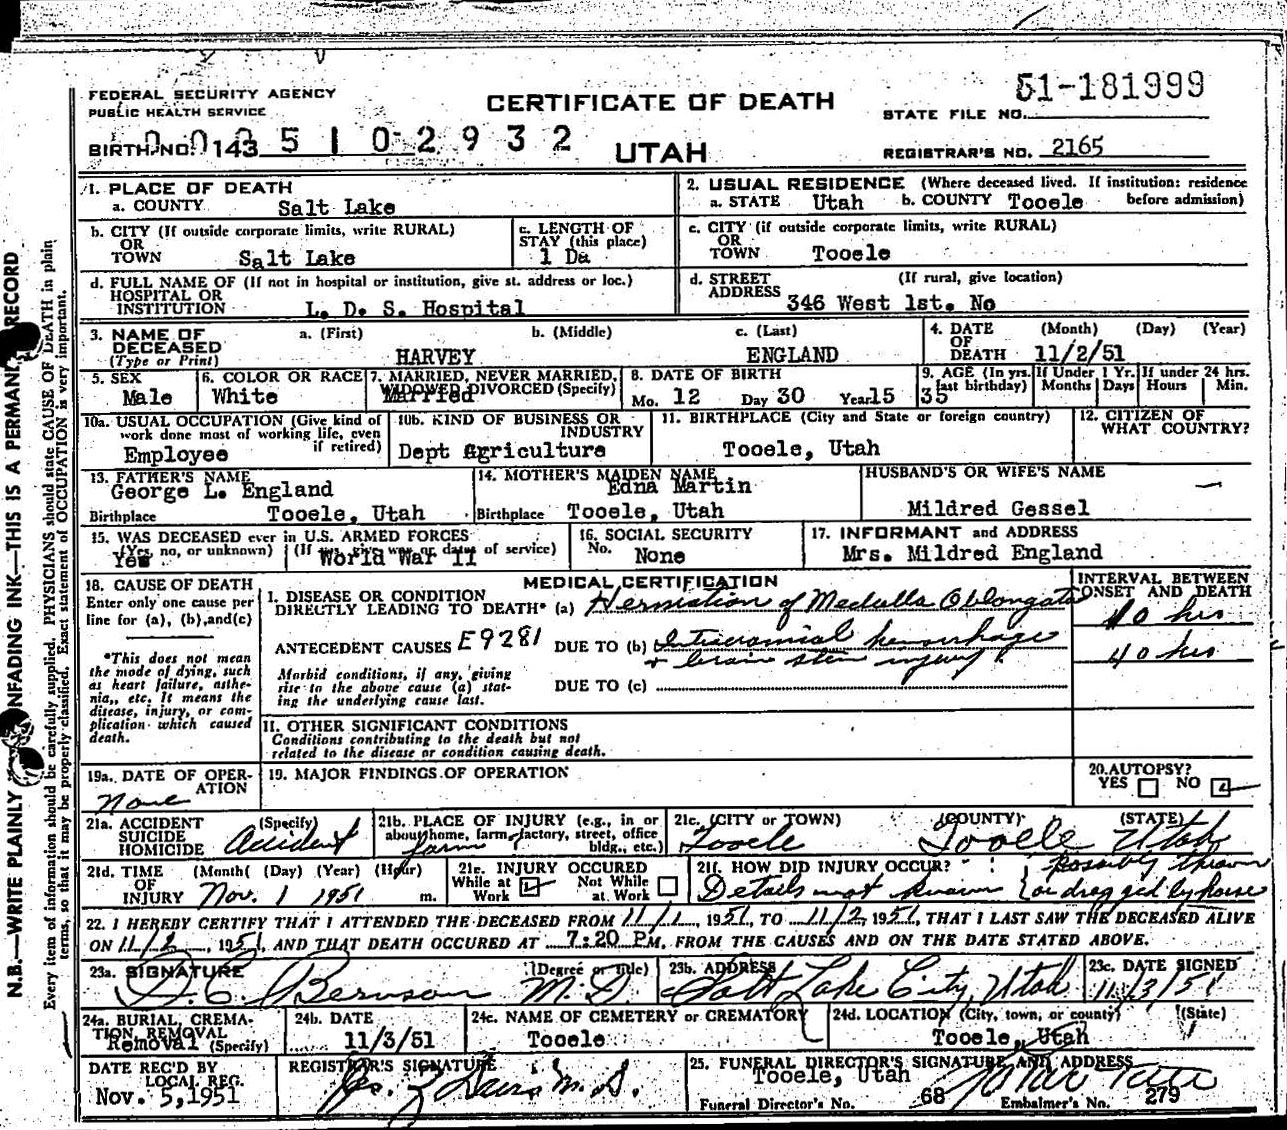 FEDERAL SECURITY AGENCY
PUBLIC HEALTH SERVICE
CERTIFICATE OF DEATH
UTAH
51-181999
STATE FILE NO.
BIRTH NO. 143 5 1 0 2 9 3 2
REGISTRAR'S NO. 2165
N.B.—WRITE PLAINLY UNFADING INK—THIS IS A PERMANENT RECORD
Every item of information should be carefully supplied. PHYSICIANS should state CAUSE OF DEATH in plain
terms, so that it may be properly classified. Exact statement of OCCUPATION is very important.
1. PLACE OF DEATH
a. COUNTY Salt Lake
2. USUAL RESIDENCE (Where deceased lived. If institution: residence
before admission)
a. STATE Utah b. COUNTY Tooele
b. CITY (If outside corporate limits, write RURAL)
OR
TOWN Salt Lake
c. LENGTH OF
STAY (this place)
1 Da
c. CITY (if outside corporate limits, write RURAL)
OR
TOWN Tooele
d. FULL NAME OF (If not in hospital or institution, give st. address or loc.)
HOSPITAL OR
INSTITUTION L. D. S. Hospital
d. STREET (If rural, give location)
ADDRESS 346 West 1st. No
3. NAME OF
DECEASED
(Type or Print)
a. (First) b. (Middle) c. (Last)
HARVEY ENGLAND
4. DATE (Month) (Day) (Year)
OF
DEATH 11/2/51
5. SEX
Male
6. COLOR OR RACE
White
7. MARRIED, NEVER MARRIED,
WIDOWED DIVORCED (Specify)
Married
8. DATE OF BIRTH
Mo. 12 Day 30 Year 15
9. AGE (In yrs. last birthday)
35
If Under 1 Yr. Months Days
If under 24 hrs. Hours Min.
10a. USUAL OCCUPATION (Give kind of
work done most of working life, even
if retired)
Employee
10b. KIND OF BUSINESS OR
INDUSTRY
Dept agriculture
11. BIRTHPLACE (City and State or foreign country)
Tooele, Utah
12. CITIZEN OF
WHAT COUNTRY?
13. FATHER'S NAME
George L. England
Birthplace Tooele, Utah
14. MOTHER'S MAIDEN NAME
Edna Martin
Birthplace Tooele, Utah
HUSBAND'S OR WIFE'S NAME
Mildred Gessel
15. WAS DECEASED ever in U.S. ARMED FORCES
(Yes, no, or unknown) (If yes, give war or dates of service)
Yes World War II
16. SOCIAL SECURITY
No. None
17. INFORMANT and ADDRESS
Mrs. Mildred England
18. CAUSE OF DEATH
Enter only one cause per
line for (a), (b), and (c)
*This does not mean
the mode of dying, such
as heart failure, asthe-
nia,, etc. It means the
disease, injury, or com-
plication which caused
death.
MEDICAL CERTIFICATION
INTERVAL BETWEEN
ONSET AND DEATH
1. DISEASE OR CONDITION
DIRECTLY LEADING TO DEATH* (a) Herniation of Medulla Oblongata
10 hrs
ANTECEDENT CAUSES E9281 DUE TO (b) Intracranial hemorrhage
+ brain stem injury
40 hrs
Morbid conditions, if any, giving
rise to the above cause (a) stat-
ing the underlying cause last.
DUE TO (c)
II. OTHER SIGNIFICANT CONDITIONS
Conditions contributing to the death but not
related to the disease or condition causing death.
19a. DATE OF OPER-
ATION
None
19. MAJOR FINDINGS OF OPERATION
20. AUTOPSY?
YES NO
21a. ACCIDENT (Specify)
SUICIDE
HOMICIDE
Accident
21b. PLACE OF INJURY (e.g., in or
about home, farm, factory, street, office
bldg., etc.)
farm
21c. (CITY or TOWN) (COUNTY) (STATE)
Tooele Tooele Utah
21d. TIME (Month) (Day) (Year) (Hour)
OF
INJURY Nov. 1 1951 m.
21e. INJURY OCCURED
While at Work Not While at Work
21f. HOW DID INJURY OCCUR?
Details not known possibly thrown
or dragged by horse
22. I HEREBY CERTIFY THAT I ATTENDED THE DECEASED FROM 11/1, 1951, TO 11/2, 1951, THAT I LAST SAW THE DECEASED ALIVE
ON 11/2, 1951, AND THAT DEATH OCCURED AT 7:20 PM, FROM THE CAUSES AND ON THE DATE STATED ABOVE.
23a. SIGNATURE (Degree or title)
Bernson M.D.
23b. ADDRESS
Salt Lake City, Utah
23c. DATE SIGNED
11/3/51
24a. BURIAL, CREMA-
TION, REMOVAL
(Specify)
Removal
24b. DATE
11/3/51
24c. NAME OF CEMETERY or CREMATORY
Tooele
24d. LOCATION (City, town, or county) (State)
Tooele, Utah
DATE REC'D BY
LOCAL REG.
Nov. 5, 1951
REGISTRAR'S SIGNATURE
M.D.
25. FUNERAL DIRECTOR'S SIGNATURE AND ADDRESS
Tooele, Utah
Funeral Director's No. 68 Embalmer's No. 279